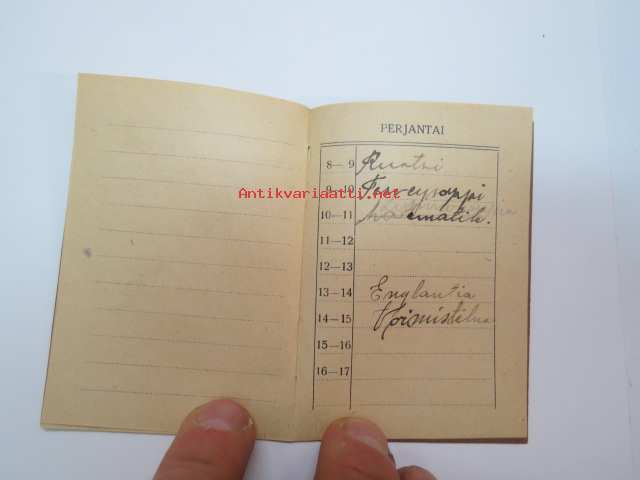 PERJANTAI
8—9 Ruotsi
9—10 Terveysoppi
10—11 Matematik.
11—12
12—13
13—14 Englantia
14—15 Voimistelua
15—16
16—17
Antikvariaatti.net